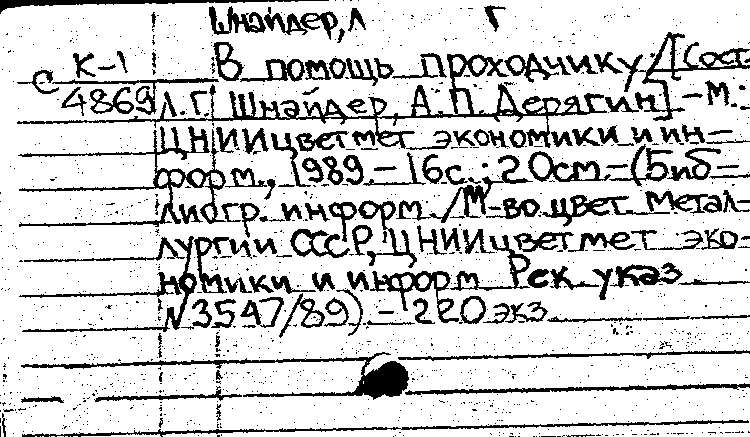 Шнайдер, Л Г
К-1 В помощь проходчику / [Сост.
С 4869 Л.Г. Шнайдер, А.П. Дерягин] - М.:
ЦНИИцветмет экономики и ин-
форм., 1989. - 16с.; 20см. - (Биб-
лиогр. информ. / М-во цвет. метал-
лургии СССР, ЦНИИцветмет эко-
номики и информ Рек. указ
N3547/89) - 220 экз.